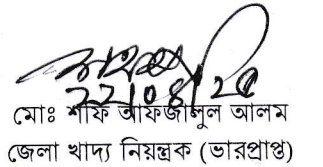 ২২/০৪/২৫
মোঃ শফি আফজালুল আলম
জেলা খাদ্য নিয়ন্ত্রক (ভারপ্রাপ্ত)